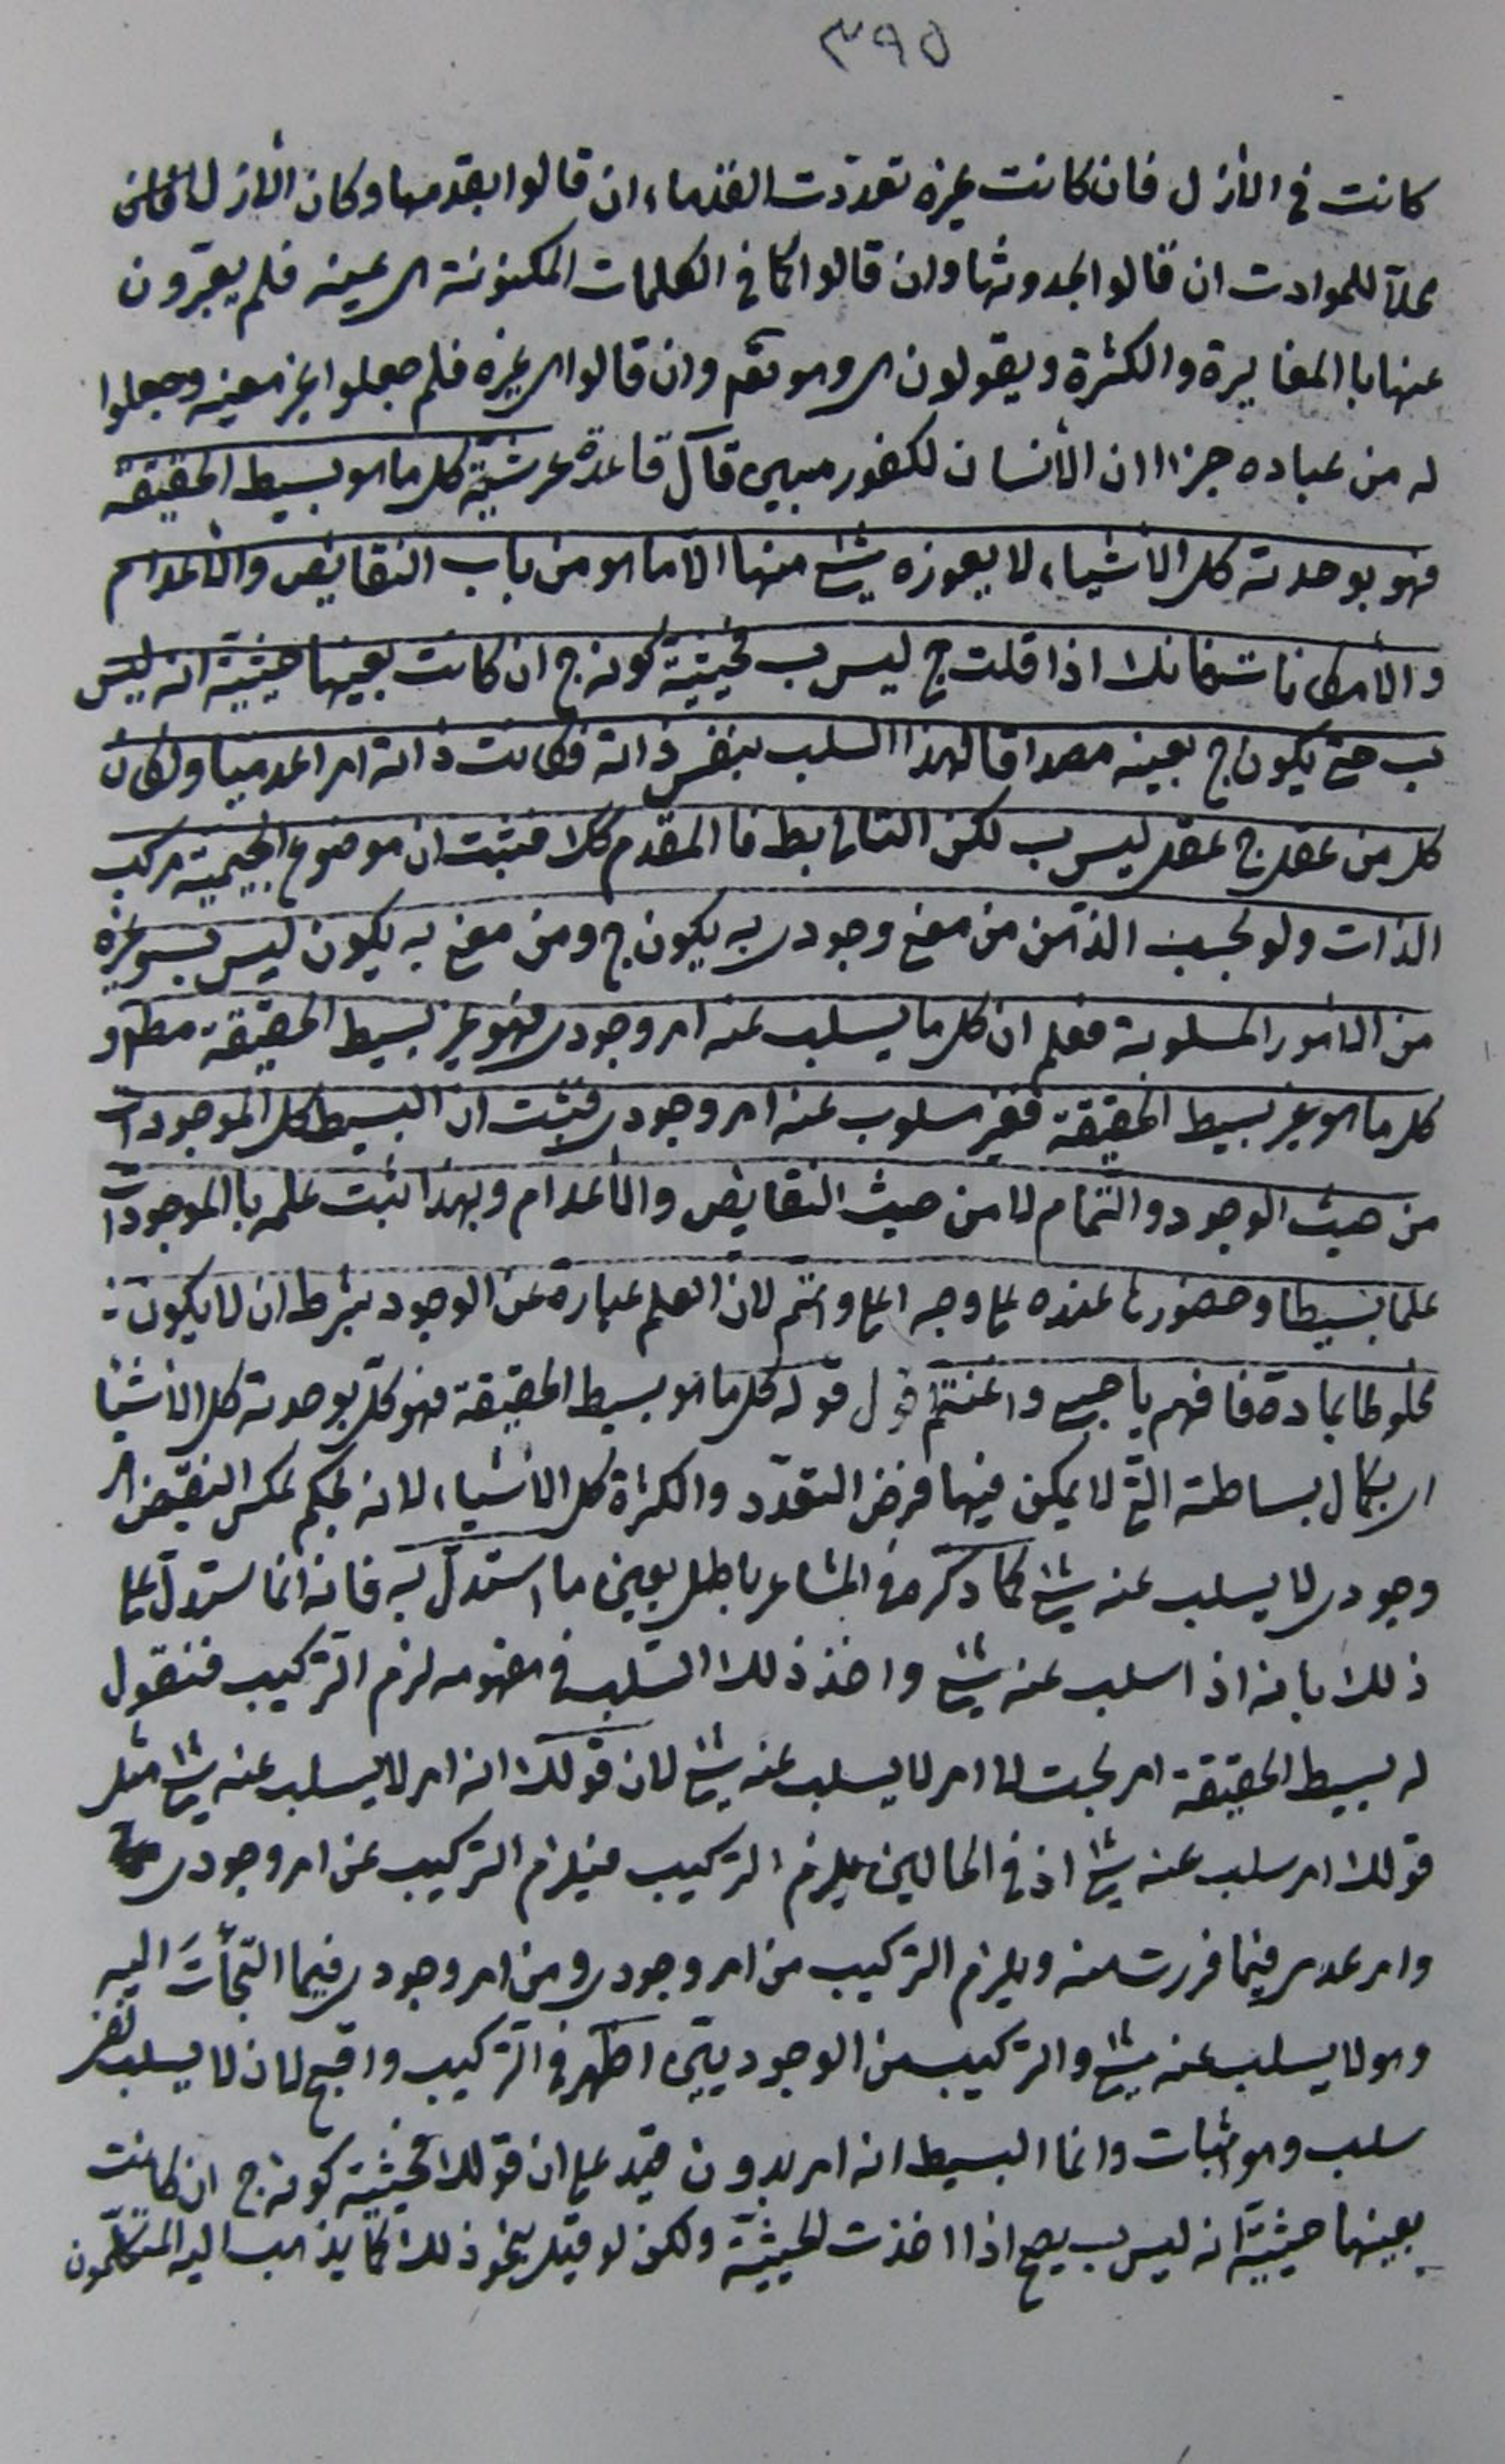 ٣٩٥
كانت في الأزل فان كانت غيره تعددت القدماء ان قالوا بقدمها وكان الأزل
محلا للحوادث ان قالوا بحدوثها وان قالوا كما في الكلمات المكنونة هي عينه فلم يعبرون
عنها با المغايرة والكثرة ويقولون هي هو وان قالوا هي غيره فلم جعلوا غيره عينه وجعلوا
له من عباده جزءا ان الأنسان لكفور مبين قال قاعدة عرشية كل ما هو بسيط الحقيقة
فهو بوحدته كل الاشياء لا يعوزه شئ منها الا ما هو من باب النقايص والأعدام
والأمكانات فانك اذا قلت ج ليس ب فحيثية كونه ج ان كانت بعينها حيثية انه ليس
ب حتى يكون ج بعينه مصداقا لهذا السلب بنفس ذاته فكانت ذاته امرا عدميا ولكان
كل من عقل ج عقل ليس ب لكن التالي بط فا المقدم كك فثبت ان موضوع الجيمية مركب
الذات ولو بحسب الذهن من معنى وجودي به يكون ج ومن معنى به يكون ليس ب وغيره
من الأمور المسلوبة فعلم ان كل ما يسلب عنه امر وجودي فهو غير بسيط الحقيقة مطلقا و
كل ما هو غير بسيط الحقيقة فغير مسلوب عنه امر وجودي فثبت ان البسيط كل الموجودات
من حيث الوجود والتمام لا من حيث النقايص والأعدام وبهذا يثبت علمه با الموجودات
علما بسيطا وحضورها عنده على وجه اعلى واتم لان العلم عبارة عن الوجود بشرط ان لا يكون
مخلوطا بمادة فافهم يا حبيبي واغتنم اقول قوله كل ما هو بسيط الحقيقة فهو كل بوحدته كل الأشياء
اي بكمال بساطته التي لا يمكن فيها فرض التعدد والكثرة كل الأشياء لانه بحكم عكس النقيض امر
وجودي لا يسلب عنه شئ كما ذكره في المشاعر باطل بعين ما استدل به فانه انما استدل على
ذلك بانه اذا سلب عنه شئ واخذ ذلك السلب في مفهومه لزم التركيب فنقول
له بسيط الحقيقة امر بحت لا امر لا يسلب عنه شئ لان قولك انه امر لا يسلب عنه شئ مثل
قولك امر سلب عنه شئ اذ في الحالين يلزم التركيب فيلزم التركيب عن امر وجودي
وامر عدمي فيما فررت منه ويلزم التركيب من امر وجودي ومن امر وجودي فيما التجأت اليه
وهو لا يسلب عنه شئ والتركيب من الوجوديين اظهر في التركيب واقبح لان لا يسلب نفي
سلب وهو اثبات وانما البسيط انه امر بدون قيد على ان قولك فحيثية كونه ج ان كانت
بعينها حيثية انه ليس ب يصح اذا اخذت الحيثية ولكن لو قيل بنحو ذلك كما يذهب اليه المتكلمون